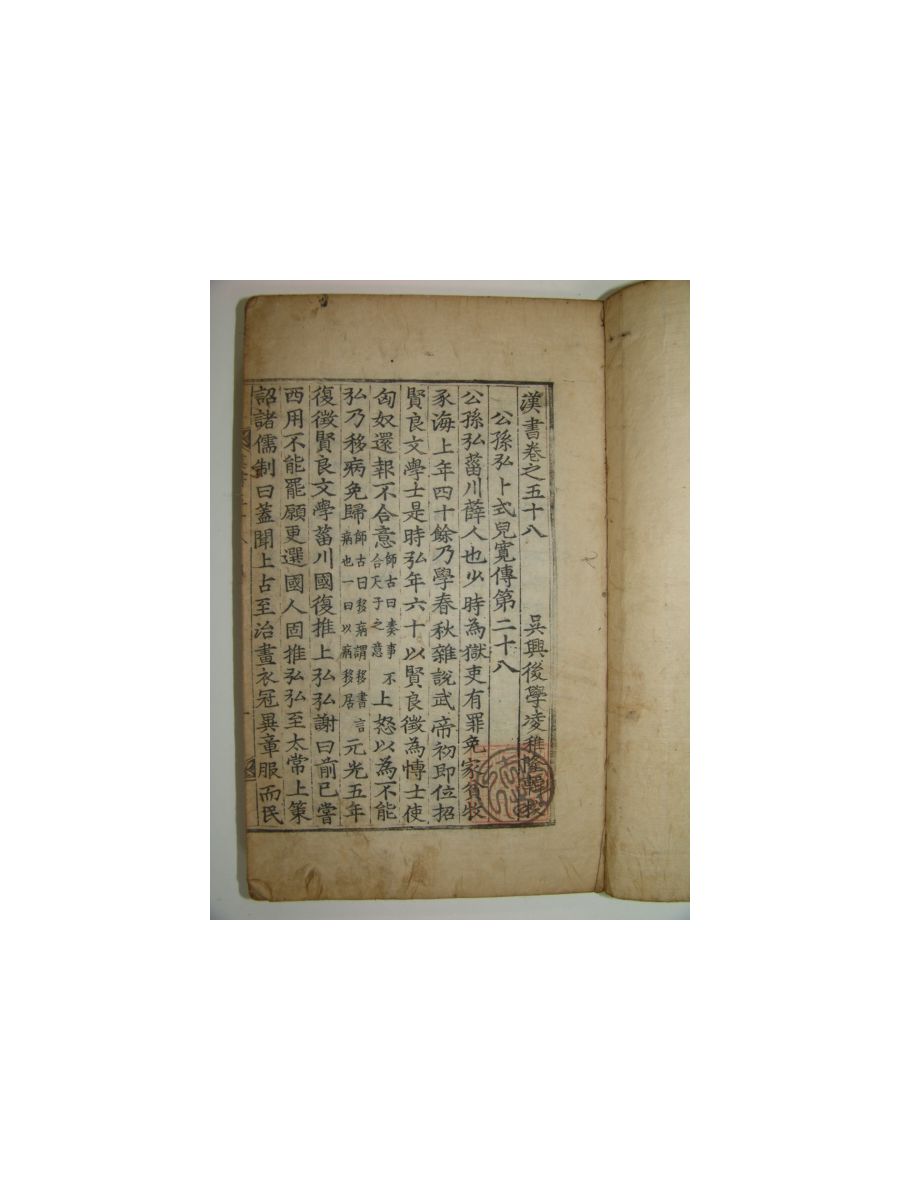 漢書卷之五十八 吳興後學凌稚隆輯校
公孫弘卜式兒寬傳第二十八
公孫弘菑川薛人也少時為獄吏有罪免家貧牧
豕海上年四十餘乃學春秋雜說武帝初即位招
賢良文學士是時弘年六十以賢良徵為博士使
匈奴還報不合意師古曰奏事不合天子之意上怒以為不能
弘乃移病免歸師古曰移病謂移書言病也一曰以病移居元光五年
復徵賢良文學菑川國復推上弘弘謝曰前已嘗
西用不能罷願更選國人固推弘弘至太常上策
詔諸儒制曰蓋聞上古至治畫衣冠異章服而民